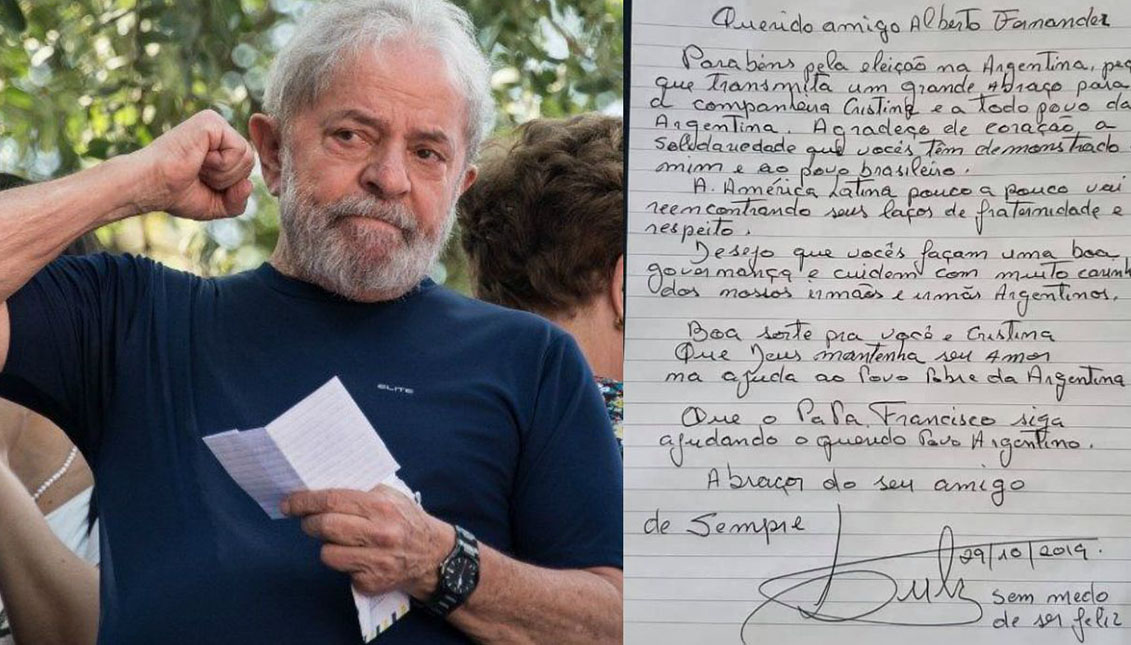 ELITE
Querido amigo Alberto Fernandez
Parabéns pela eleição na Argentina, peç
que transmita um grande Abraço para
a companheira Cristina e a todo povo da
Argentina. Agradeço de coração, a
solidariedade que vocês têm demonstrado
a mim e ao povo brasileiro.
A América Latina pouco a pouco vai
reencontrando seus laços de fraternidade e
respeito.
Desejo que vocês façam uma boa
governança e cuidem com muito carinh
dos nossos irmãos e irmãs Argentinos.
Boa sorte pra você e Cristina
Que Deus mantenha seu Amor
na ajuda ao Povo Pobre da Argentina
Que o PaPa Francisco siga
ajudando o querido Povo Argentino.
Abraços do seu amigo
de Sempre
Lula
29/10/2019.
sem medo
de ser feliz